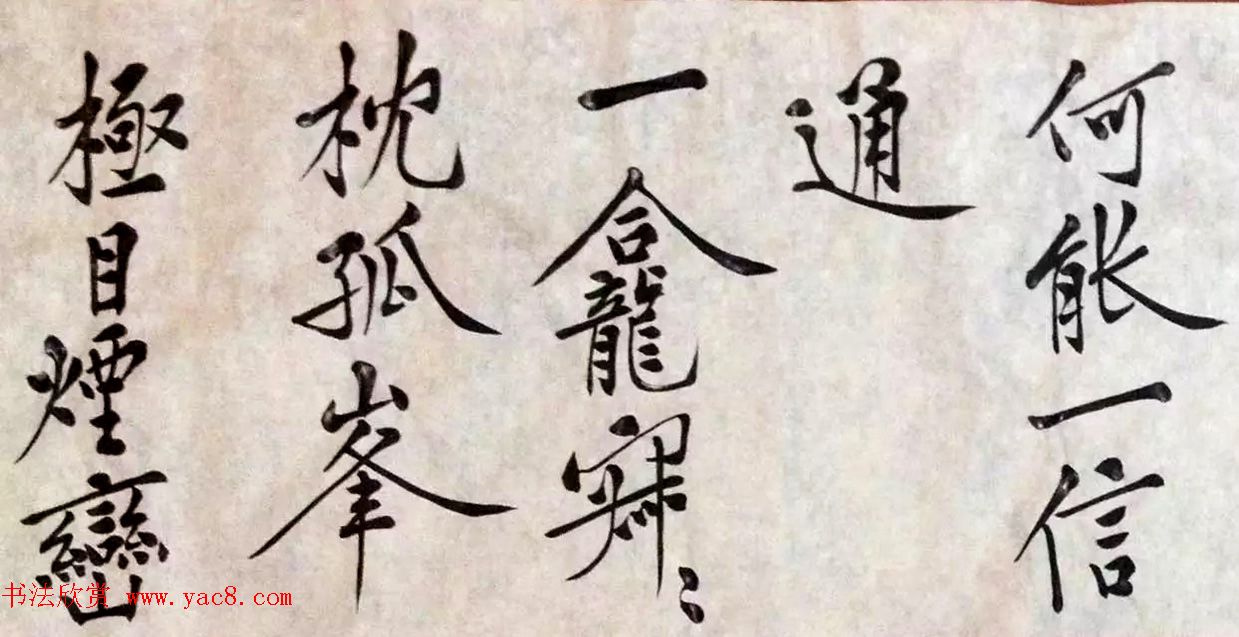 何能一信
通
一龕寂〻
枕孤峯
極目煙巒
书法欣赏 www.yac8.com